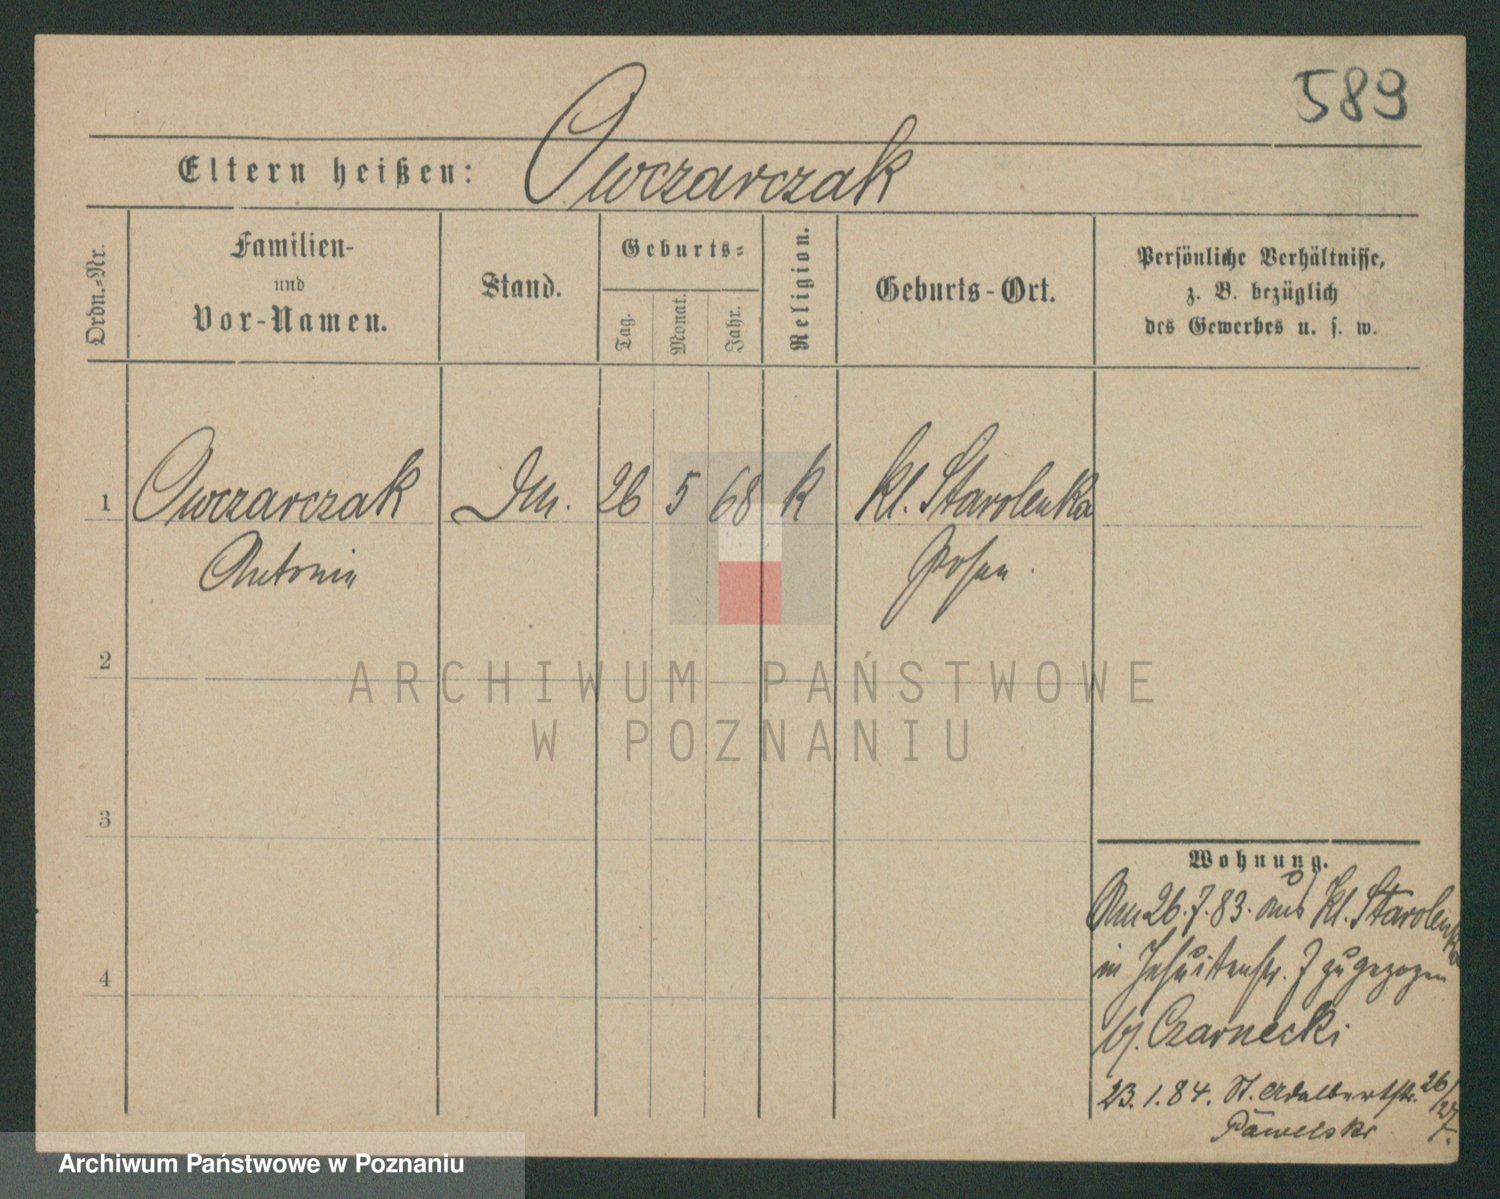 589
Eltern heißen: Owczarczak
Ordn.-Nr.
Familien-
und
Vor-Namen.
Stand.
Geburts-
Tag.
Monat.
Jahr.
Religion.
Geburts-Ort.
Persönliche Verhältnisse,
z. B. bezüglich
des Gewerbes u. s. w.
1 Owczarczak 26 5 68 k Kl. Starolenka
Antonie Posen.
2
3
4
Wohnung.
Am 26.7.83. aus Kl. Starolenka
in Jesuitenstr. 7 zugezogen
b/. Czarnecki
23.1.84. St. Adalbertstr. 26/27
Pawelski
ARCHIWUM PAŃSTWOWE
W POZNANIU
Archiwum Państwowe w Poznaniu